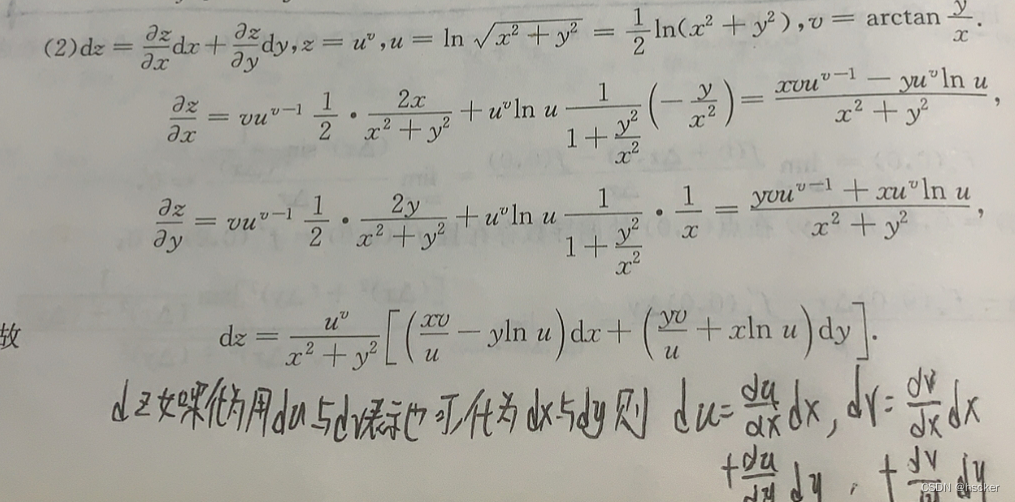 (2)dz = ∂z/∂x dx + ∂z/∂y dy, z = u^v, u = ln √(x² + y²) = 1/2 ln(x² + y²), v = arctan y/x.
∂z/∂x = vu^(v−1) 1/2 · 2x/(x² + y²) + u^v ln u 1/(1 + y²/x²) (− y/x²) = (xvu^(v−1) − yu^v ln u)/(x² + y²),
∂z/∂y = vu^(v−1) 1/2 · 2y/(x² + y²) + u^v ln u 1/(1 + y²/x²) · 1/x = (yvu^(v−1) + xu^v ln u)/(x² + y²),
故 dz = u^v/(x² + y²) [(xv/u − yln u)dx + (yv/u + xln u)dy].
dz如果化为用du与dv表示也可化为dx与dy则 du = du/dx dx, dv = dv/dx dx
+ du/dy dy, + dv/dy dy
CSDN @hscker